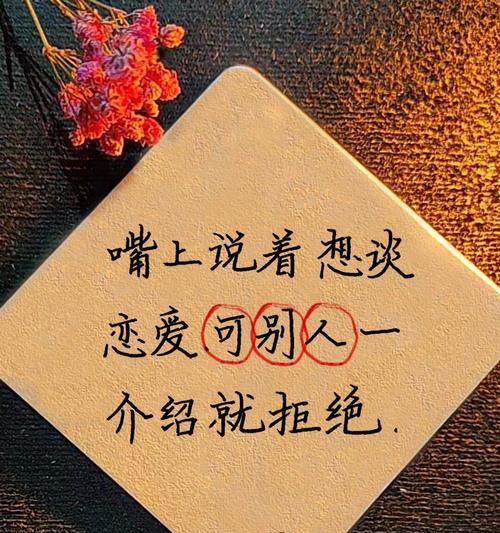 嘴上说着想谈
恋爱.可别人一
介绍就拒绝.